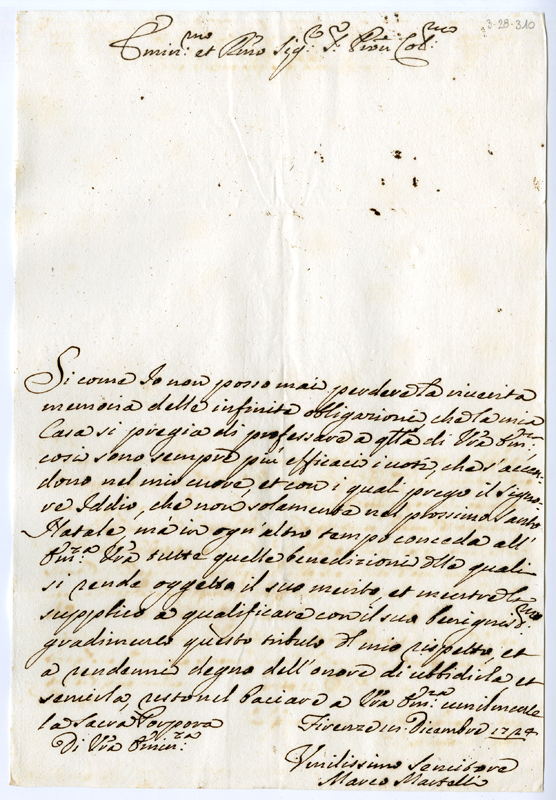 3-28-310
Emin:mo et Rmo Sig:re
Si come Io non posso mai perdere la riverita
memoria delle infinite obligazione che la mia
Casa si pregia di professare a qlla di Vra Em:za
così sono sempre più efficaci i voti, che s'accen-
dono nel mio cuore, et con i quali prego il Signo-
re Iddio, che non solamente nel prossimo santo
Natale, mà in ogn'altro tempo conceda all'
Em:za Vra tutte quelle benedizioni dlle quali
si rende oggetto il suo merito, et mentre la
supplico a qualificare con il suo benignis:mo
gradimento questo tributo dl mio rispetto, et
a rendermi degno dell'onore di ubbidirla et
servirla resto nel baciare a Vra Em:za umilmente
la Sacra Porpora Firenze in Dicembre 1724
Di Vra Emin:za
Umilissimo Servitore
Marco Martelli